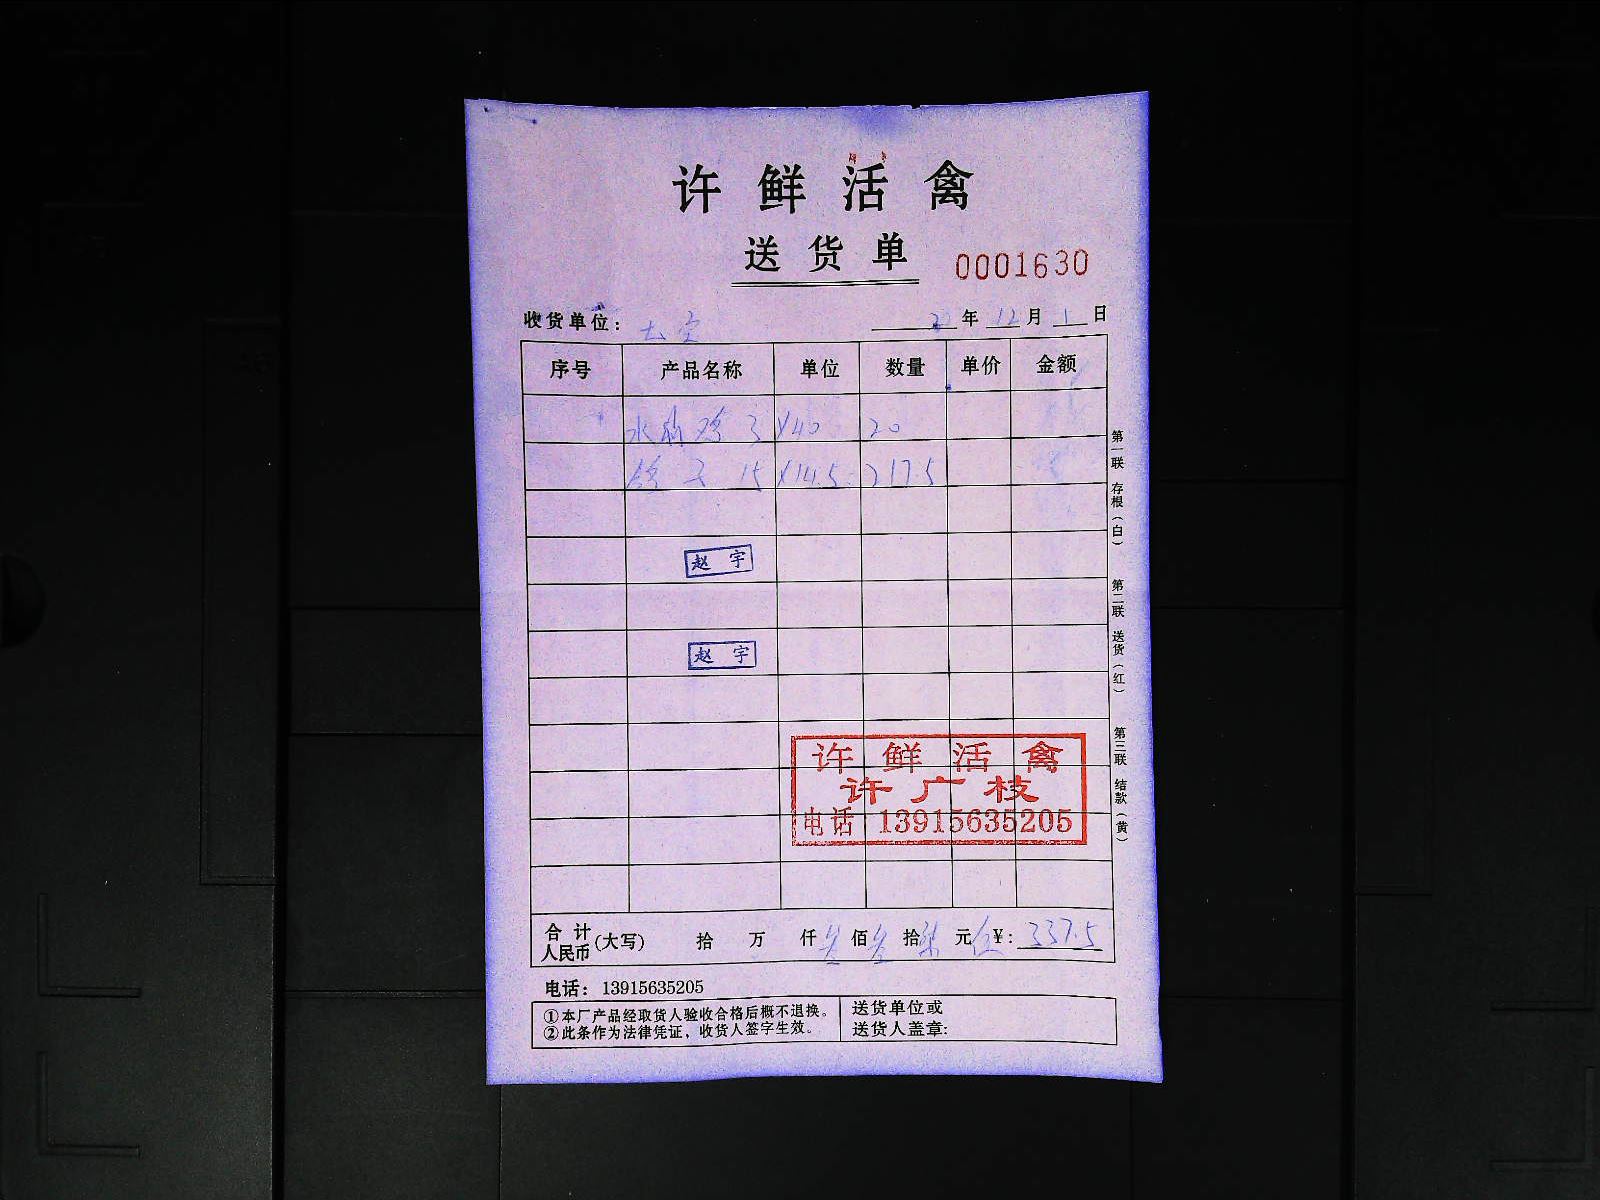 许鲜活禽
送货单 0001630
收货单位: 年 12 月 1 日
序号 产品名称 单位 数量 单价 金额
鸡 3 X40 20
鸽子 15 X14.5 217.5
赵宇
赵宇
许鲜活禽
许广枝
电话 13915635205
合计人民币(大写) 拾 万 仟叁佰叁拾柒元伍¥: 337.5
电话: 13915635205
①本厂产品经取货人验收合格后概不退换。
②此条作为法律凭证，收货人签字生效。
送货单位或
送货人盖章:
第一联 存根(白)
第二联 送货(红)
第三联 结款(黄)